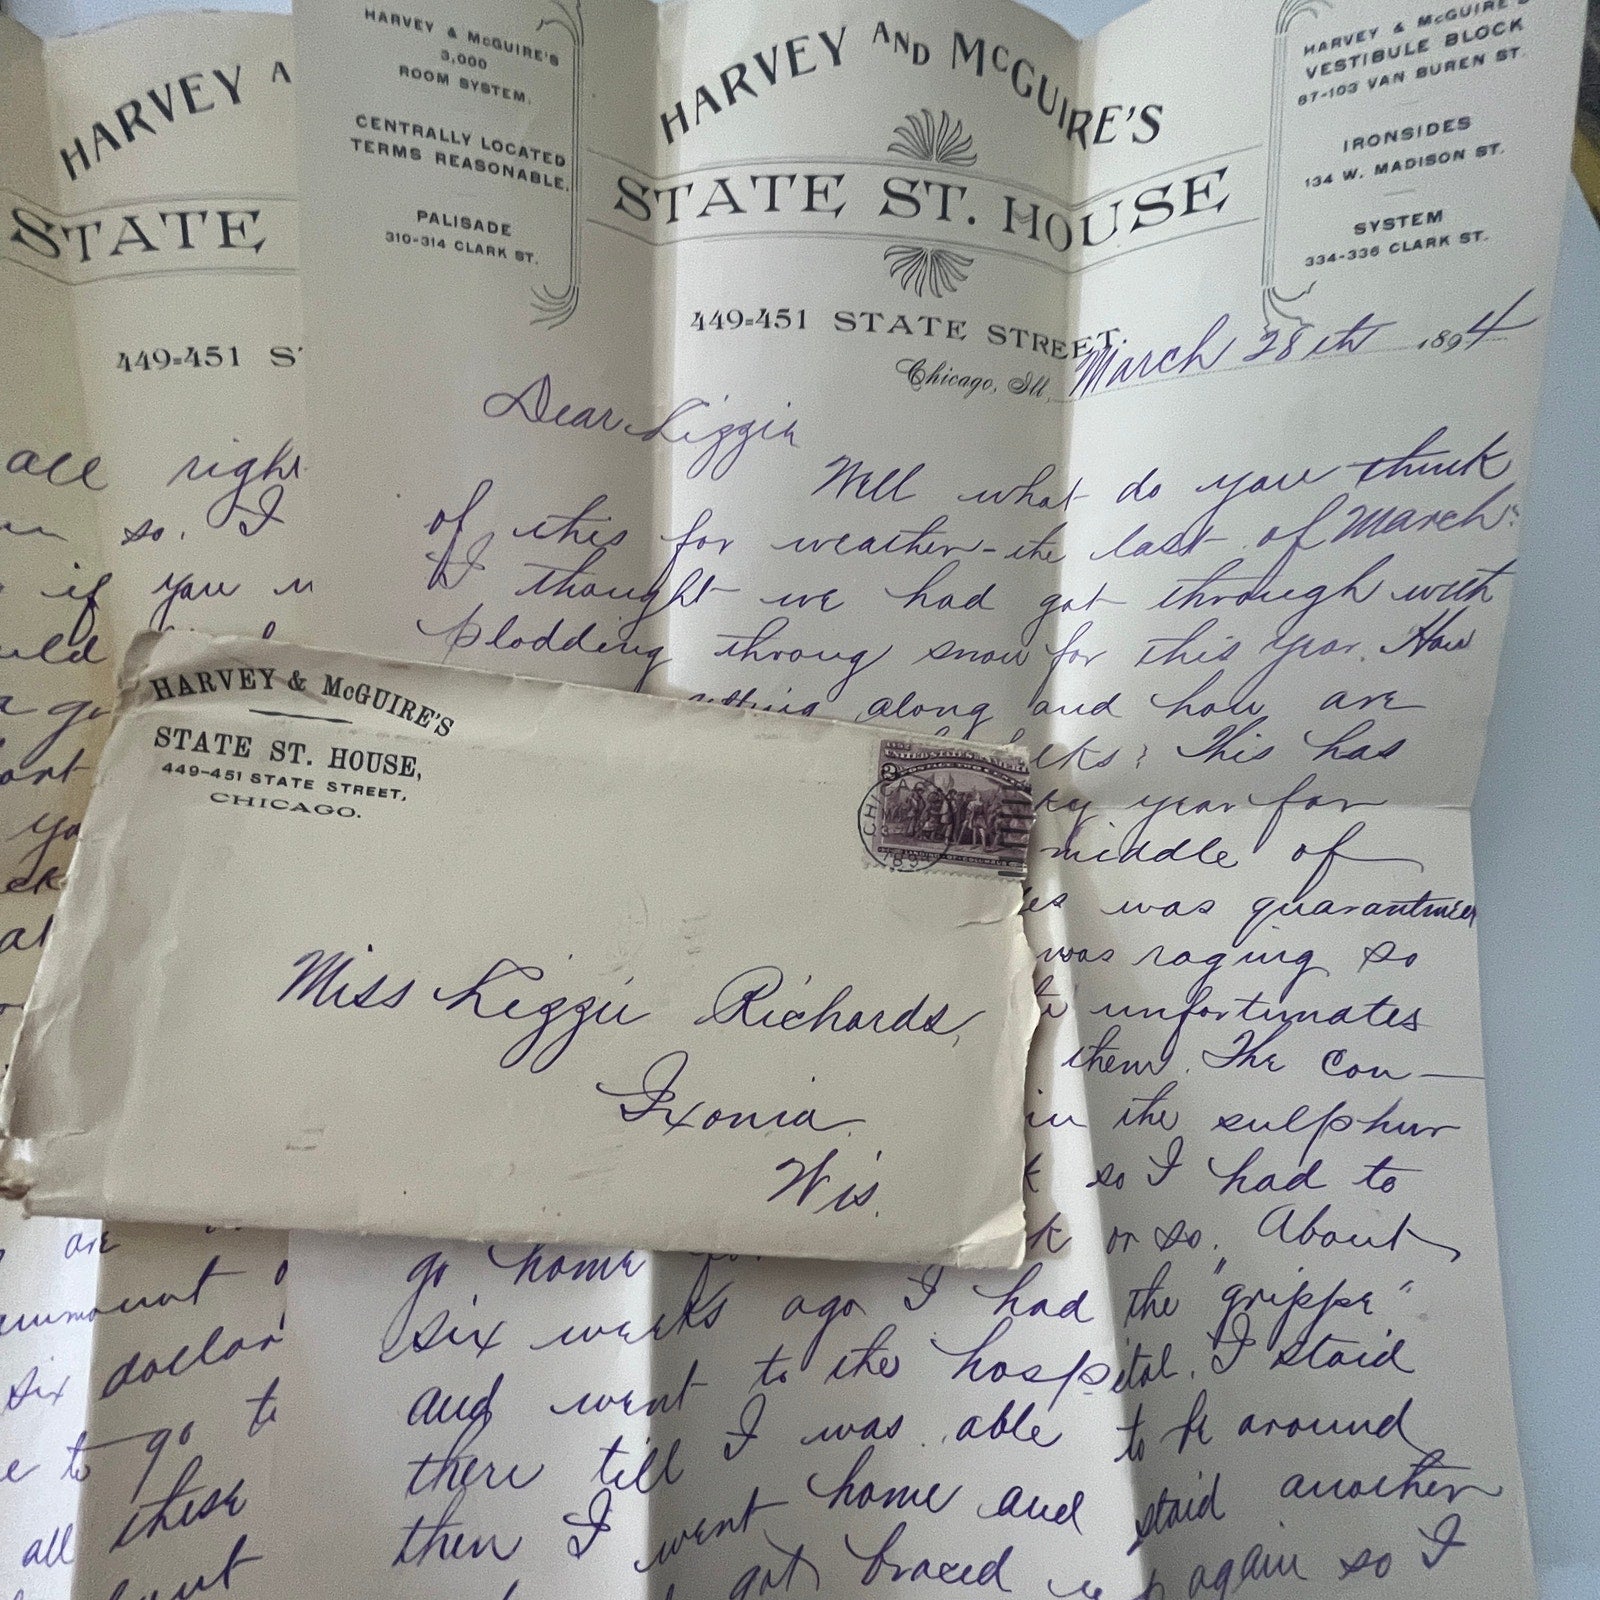 HARVEY A
STATE
449-451 S
all right
so. I
if you
six dollar
to go to
all these
HARVEY & McGUIRE'S
3,000
ROOM SYSTEM.
CENTRALLY LOCATED
TERMS REASONABLE.
PALISADE
310-314 CLARK ST.
HARVEY AND McGUIRE'S
STATE ST. HOUSE
449=451 STATE STREET.
HARVEY & McGUIRE'S
VESTIBULE BLOCK
87-103 VAN BUREN ST.
IRONSIDES
134 W. MADISON ST.
SYSTEM
334-336 CLARK ST.
Chicago, Ill., March 28th 1894
Dear Lizzie
Well what do you think
of this for weather - the last of March?
I thought we had got through with
plodding throug snow for this year. How
along and how are
This has
year for
middle of
was quarantined
was raging so
unfortunates
them. The con-
in the sulphur
so I had to
or so. About
go home
six weeks ago I had the "grippe"
and went to the hospital. I staid
there till I was able to be around
then I went home and staid another
got braced up again so I
HARVEY & McGUIRE'S
STATE ST. HOUSE,
449-451 STATE STREET,
CHICAGO.
2
CHICAGO
Miss Lizzie Richards,
Ixonia
Wis.